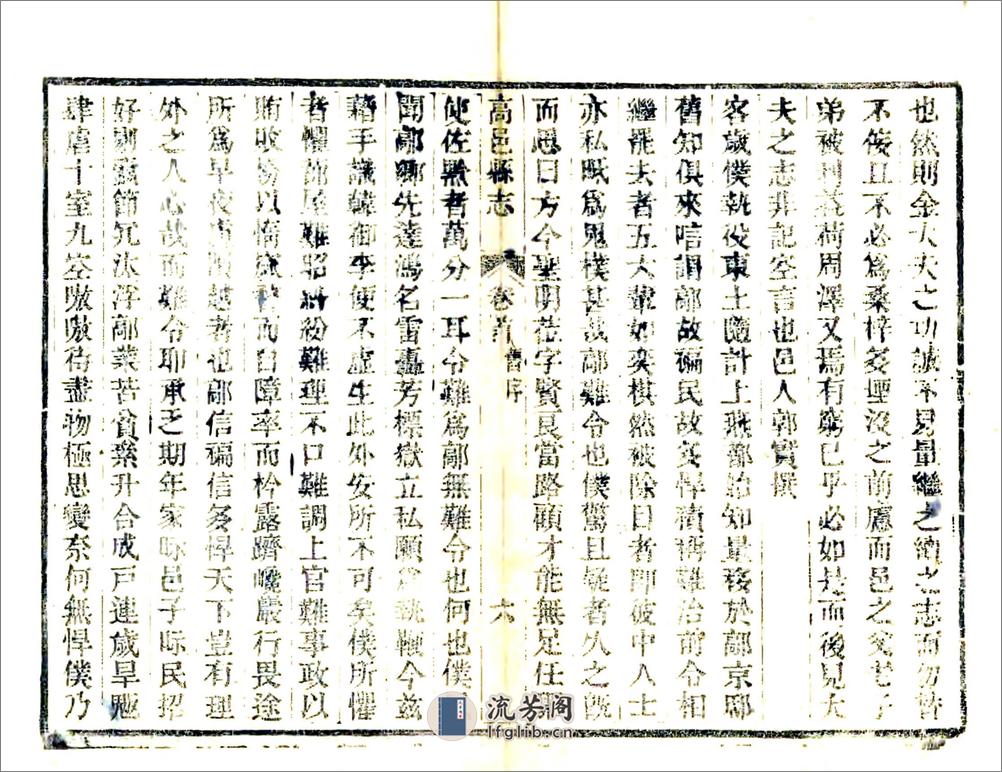 也然則金大夫之功誠不易量繼之續之志而勿替
不佞且不必為桑梓多堙沒之前慮而邑之父老子
弟被荷周澤又焉有窮已乎必如是而後見大
夫之志非記空言也邑人郭實撰
客歲僕執役東土隨計上燕都始知量移於鄗京邸
舊知俱來唁謂鄗故褊民故多悍積稱難治前令相
繼罷去者五六輩如奕棋然被除目者即彼中人士
亦私眂為鬼樸甚哉鄗難令也僕驚且疑者久之旣
而思曰方今聖明蒞宇賢良當路顧才能無足任
高邑縣志
卷首 舊序
六
使佐黔者萬分一耳令難為鄗無難令也何也僕
聞鄗鄉先達鴻名雷轟芳標嶽立私願為執鞭今茲
藉手識韓御李便不虛生此外安所不可矣僕所懼
者懼蔀屋難昭糾紛難理不口難調上官難事敢以
賄敗務以惰窳而自障率而衿露躋巉巖行畏途
所為早夜越者也鄗信褊信多悍天下豈有理
外之人心哉而難令耶承乏期年家眎邑子眎民招
好剔蠹節冗汰浮鄗業苦貧業升合成戶連歲旱魃
肆虐十室九空嗷嗷待盡物極思變奈何無悍僕乃
流芳阁
lfglib.cn